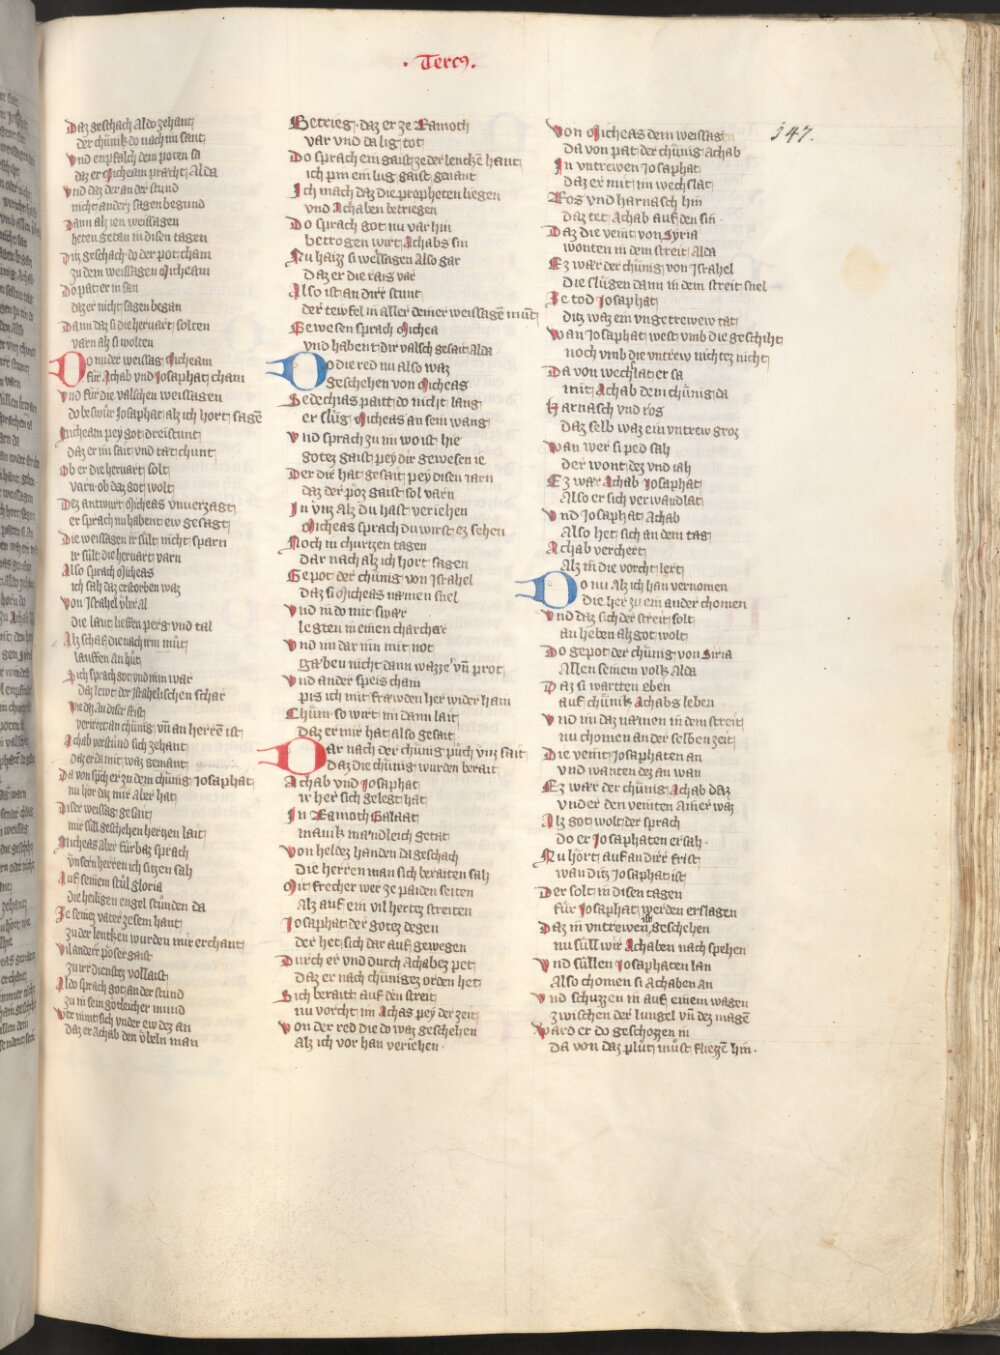 · Terc9 ·
347.
Daz geschach Aldo zehant
der chünik do nach im sant
Vnd enpfalch dem poten sa
daz er Micheam pracht Alda
Vnd daz der an der stund
nicht anders sagen begund
Dann als ien weissagen
heten getan in disen tagen
Ditz geschach do der pot cham
zu dem weissagen Micheam
Do pat er in san
daz er nicht sagen began
Dann daz si die heruart solten
varn als si wolten
Do nu der weissag Micheam
für Achab vnd Josaphat cham
Vnd für die valschen weissagen
do beswür Josaphat als ich hort sagē
Micheam pey got dreistunt
daz er im sait vnd tat chunt
Ob er die heruart solt
varn ob daz got wolt
Des antwurt Micheas vnuerzagt
er sprach nu habent ew gesagt
Die weissagen ir sült nicht sparn
ir sült die heruart varn
Also sprach Micheas
ich sah daz erstorben waz
Von Israhel vberal
die laut lieffen perg vnd tal
Als schaf die nach irm müt
lauffen an hüt
Sich sprach got vnd nim war
daz lewt der Israhelischen schar
Wie daz in diser frist
vertret an chünig vn̄ an herrē ist
Achab verstund sich zehant
daz er da mit waz gemant
Da von sprch er zu dem chünig Josaphat
nu hör daz mir Aber hat
Diser weissag gesait
mir süll geschehen hertzen lait
Micheas aber fürbaz sprach
vnsern herren ich sitzen sah
Auf seinem stül gloria
die heiligen engel stunden da
Ze seines vater zesem hant
zu der lencken wurden mir erchant
Vil anderr pöser gaist
zu irr dienstez vollaist
Aldo sprach got an der stund
zu in sein götleicher mund
Wer nimt sich vnder ew dez an
daz er Achab den vbeln man
Betrieg · daz er ze Ramoth
var vnd da lig tot
Do sprach ein gaist ze der lenchē hant
ich pin ein lug gaist genant
Ich mach daz die propheten liegen
vnd Achaben betriegen
Do sprach got nu var hin
betrogen wirt Achabs sin
Nu haizz si weissagen Also gar
daz er die rais var
Also ist an dirr stunt
der tewfel in aller deiner weissagē mūt
Gewesen sprach Michea
vnd habent dir valsch gesait Alda
Do die red nu also waz
geschehen von Micheas
Sedechias pait do nicht lang
er slüg Micheas an sein wang
Vnd sprach zu im wo ist hie
gotez gaist pey dir gewesen ie
Der dir hat gesait pey disen iarn
daz der pöz gaist sol varn
In vns Alz du hast veriehen
Micheas sprach du wirst ez sehen
Noch in churtzen tagen
dar nach alz ich hort sagen
Gepot der chünig von Israhel
daz si Micheas namen snel
Vnd in do mit swær
legten in einen charchær
Vnd im dar inn mit not
gaben nicht dann wazzer vn̄ prot
Vnd ander speis cham
pis ich mit frewden her wider ham
Chüm so wirt im dann lait
daz er mir hat also gesait
Dar nach der chünig püch vns sait
daz die chünig wurden berait
Achab vnd Josaphat
ir her sich gelegt hat
In Ramoth Galaat
manik mandleich getat
Von heldez handen da geschach
die herren man sich beraiten sah
Mit frecher wer ze paiden seiten
Alz auf ein vil hertez streiten
Josaphat der gotez degen
der het sich dar auf gewegen
Durch er vnd durch Achabez pet
daz er nach chünigez orden het
Sich berait auf den streit
nu vorcht im Achas pey der zeit
Von der red die do waz geschehen
Alz ich vor han veriehen ·
Von Micheas dem weissagen
da von pat der chünig Achab
In vntrewen Josaphat
daz er mit im wechslat
Ros vnd harnasch hin
daz tet Achab auf den sin
Daz die veint von Syria
wonten in dem streit Alda
Ez wær der chünig von Israhel
die slügen dann in dem streit snel
Ze tod Josaphat
ditz waz ein vngetrewew tat
Wan Josaphat west vmb die geschiht
noch vmb die vntrew nichtez nicht
Da von wechslat er sa
mit Achab dem chünig da
Harnasch vnd ros
daz selb waz ein vntrew groz
Wan wer si ped sah
der wont dez vnd iah
Ez wær Achab Josaphat
Also er sich verwandlat
Vnd Josaphat Achab
Also het sich an dem tag
Achab verchert
Alz in die vorcht lert
Do nu Alz ich han vernomen
die her zu ein ander chomen
Vnd daz sich der streit solt
an heben alz got wolt
Do gepot der chünig von Siria
Allen seinem volk Alda
Daz si wartten eben
auf chünik Achabs leben
Vnd im daz næmen in dem streit
nu chomen an der selben zeit
Die veint Josaphaten an
vnd wanten dez an wan
Ez wær der chünig Achab daz
vnder den veinten Aiñer waz
Alz got wolt der sprach
do er Josaphaten ersah ·
Nu hört auf an dirr frist
wan ditz Josaphat ist
Der solt in disen tagen
für Josaphat werden erslagen
Daz in vntrewen ist geschehen
nu süll wir Achaben nach spehen
Vnd süllen Josaphaten lan
Also chomen si Achaben an
Vnd schuzzen in auf einem wagen
zwischen der lungel vn̄ dez magē
Ward er do geschozen in
da von daz plüt müst fliezzē hin ·